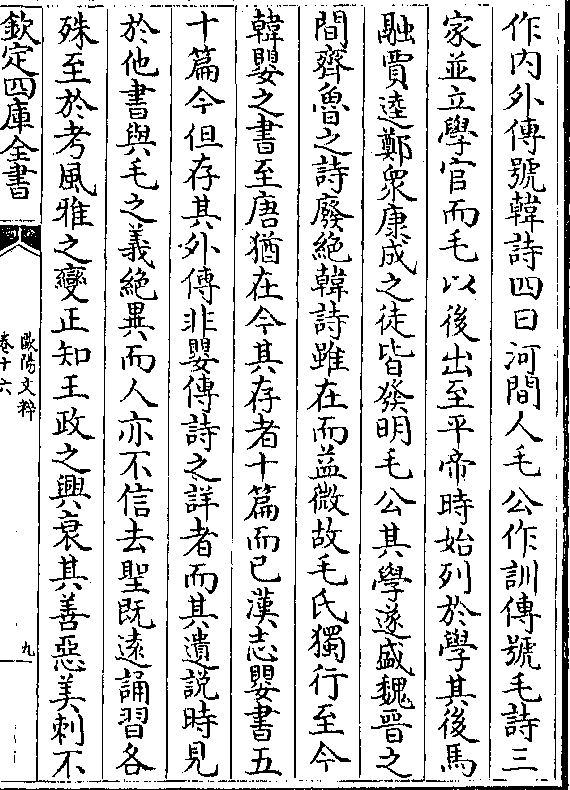 作内外傳號韓詩四曰河間人毛公作訓傳號毛詩三
家並立學官而毛以後出至平帝時始列於學其後馬
融賈逵鄭衆康成之徒皆發明毛公其學遂盛魏晉之
間齊魯之詩廢絶韓詩雖在而益微故毛氏獨行至今
韓嬰之書至唐猶在今其存者十篇而已漢志嬰書五
十篇今但存其外傳非嬰傳詩之詳者而其遺説時見
於他書與毛之義絶異而人亦不信去聖既逺誦習各
殊至於考風雅之變正知王政之興衰其善惡美刺不
欽定四庫全書
歐陽文粹
卷十六
九